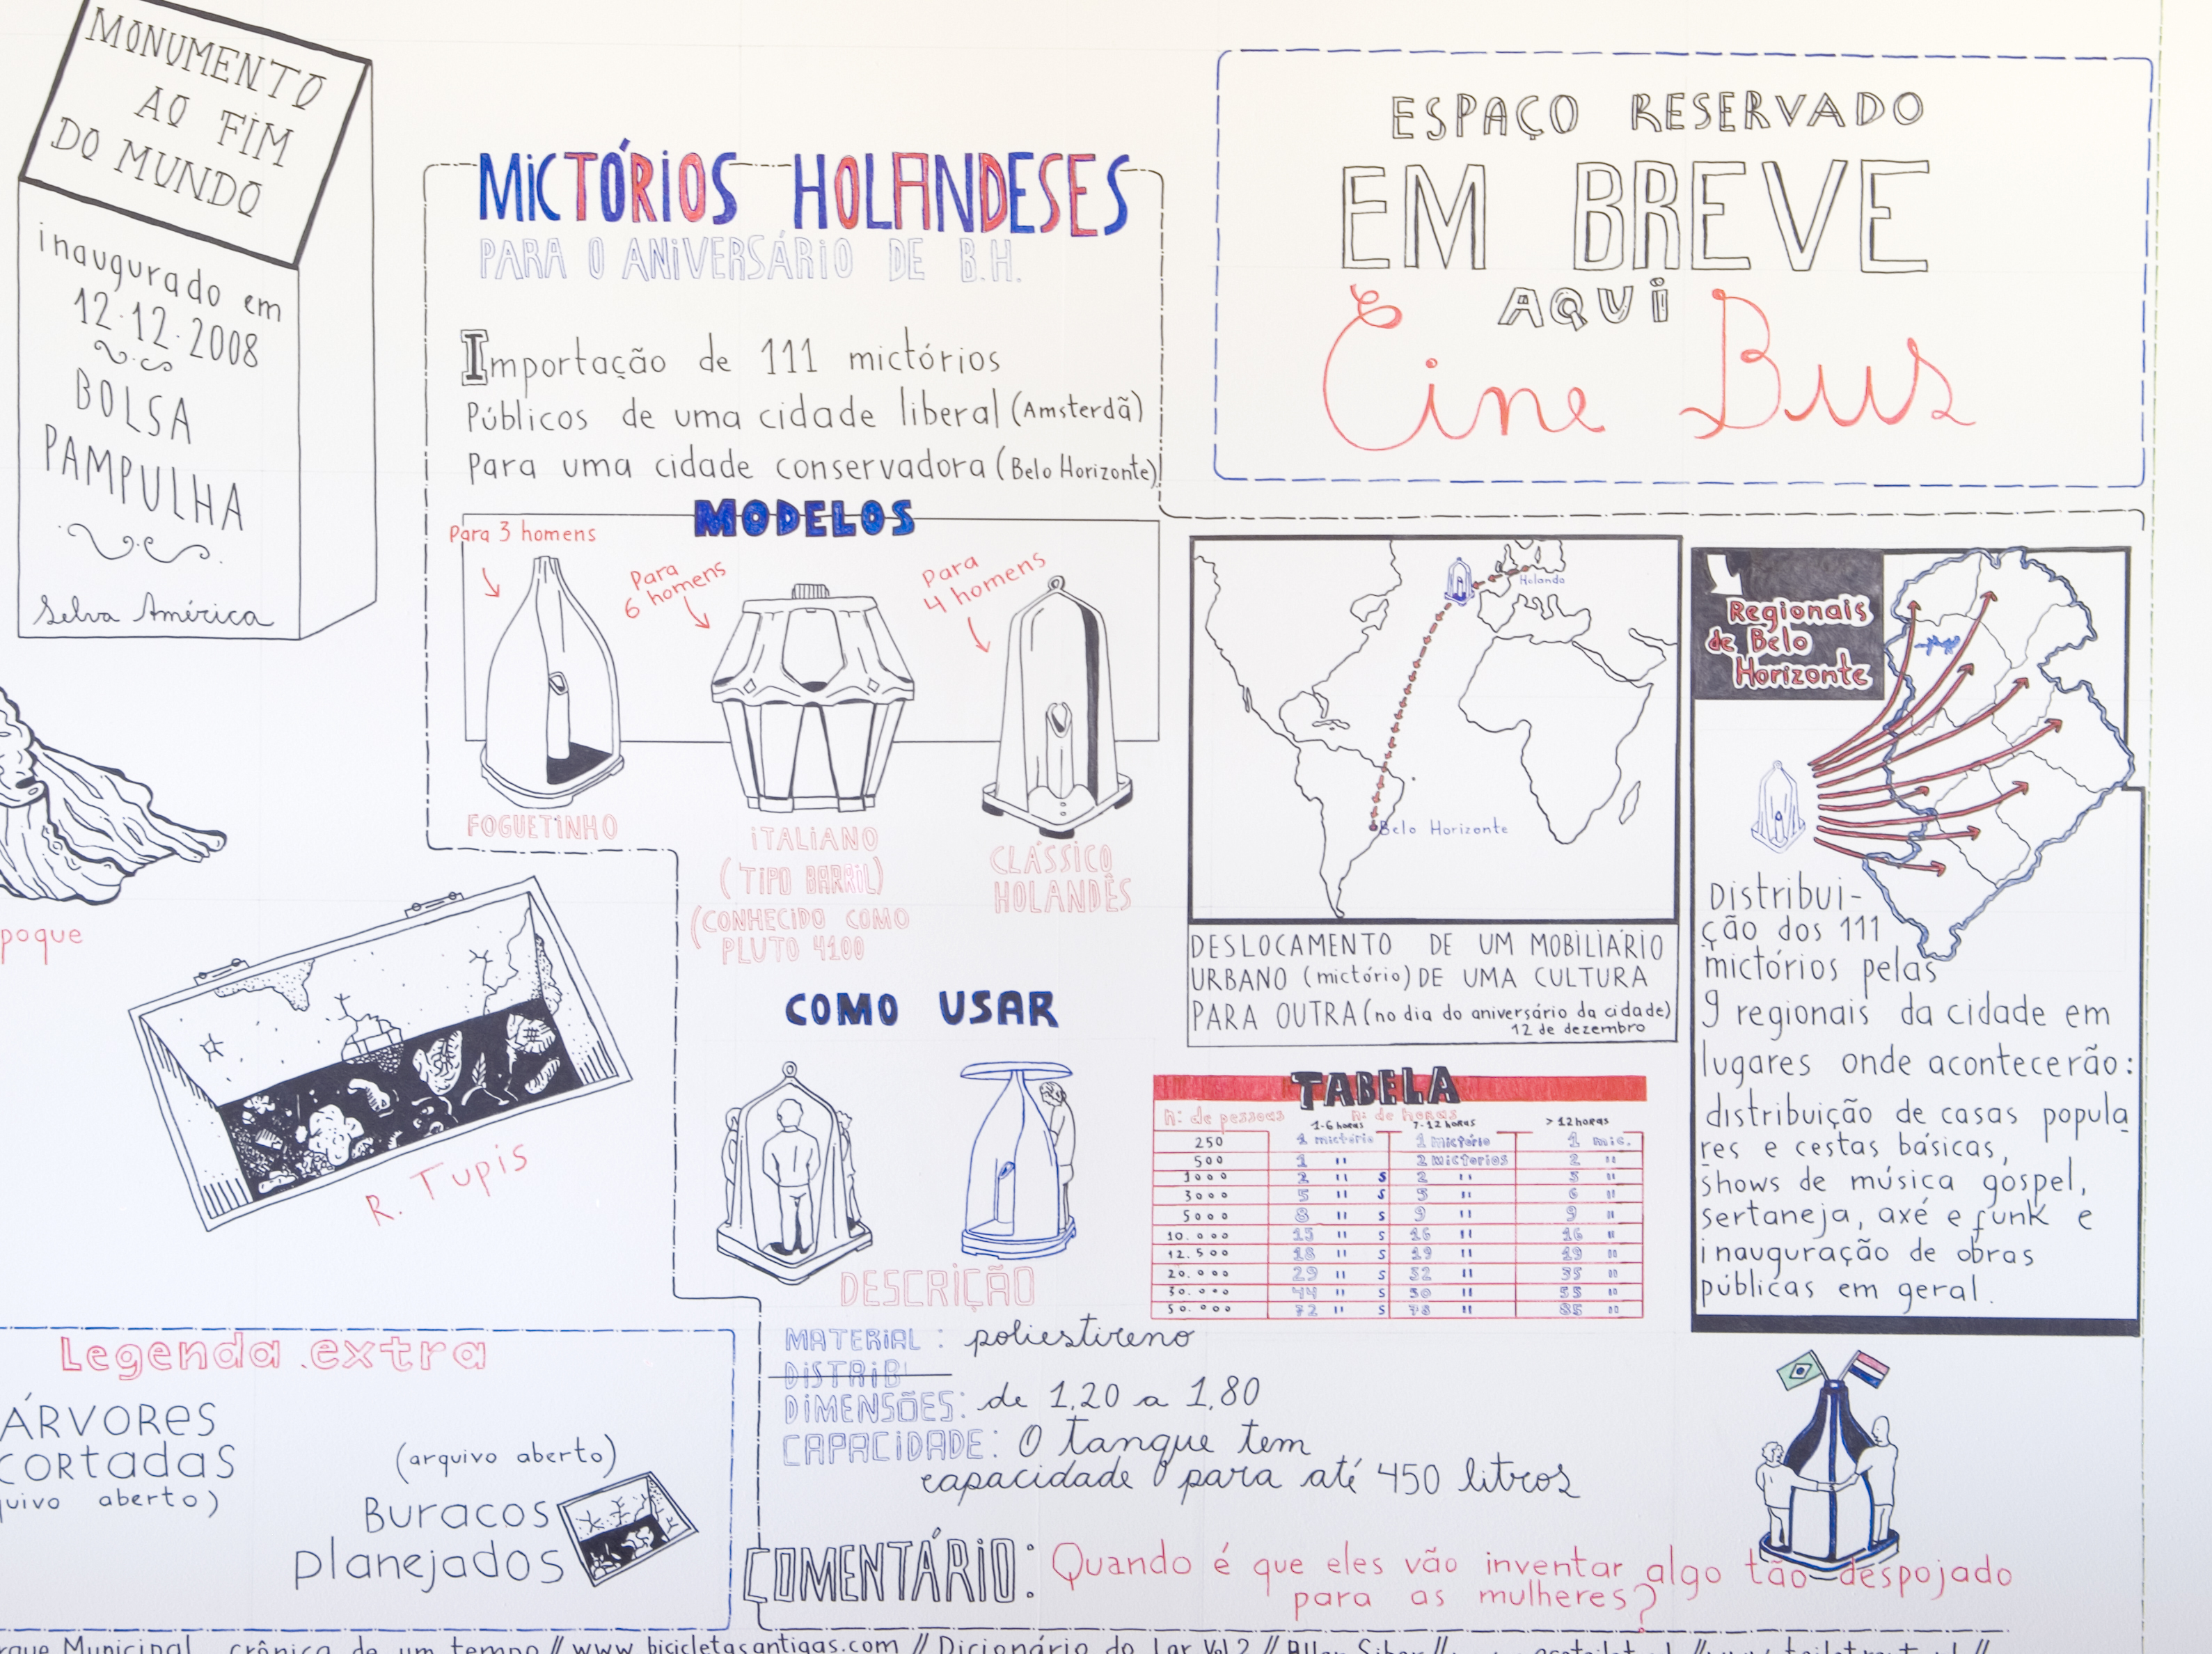 MONUMENTO
AO FIM
DO MUNDO
inaugurado em
12.12.2008
BOLSA
PAMPULHA
Selva América
MICTÓRIOS HOLANDESES
PARA O ANIVERSÁRIO DE B.H.
Importação de 111 mictórios
Públicos de uma cidade liberal (Amsterdã)
Para uma cidade conservadora (Belo Horizonte)
MODELOS
Para 3 homens
Para
6 homens
Para
4 homens
FOGUETINHO
ITALIANO
(TIPO BARRIL)
(CONHECIDO COMO
PLUTO 4100
CLÁSSICO
HOLANDÊS
ESPAÇO RESERVADO
EM BREVE
AQUI
Cine Bus
Holanda
Belo Horizonte
DESLOCAMENTO DE UM MOBILIÁRIO
URBANO (mictório) DE UMA CULTURA
PARA OUTRA (no dia do aniversário da cidade)
12 de dezembro
Regionais
de Belo
Horizonte
Distribui-
ção dos 111
mictórios pelas
9 regionais da cidade em
lugares onde acontecerão:
distribuição de casas popula
res e cestas básicas,
shows de música góspel,
sertaneja, axé e funk e
inauguração de obras
públicas em geral.
poque
R. Tupis
COMO USAR
TABELA
nº de pessoas nº de horas
1-6 horas 7-12 horas >12 horas
250 1 mictório 1 mictório 1 mic.
500 1 " 2 mictorios 2 "
1000 2 " s 2 " 3 "
3000 5 " s 5 " 6 "
5000 8 " s 9 " 9 "
10.000 15 " s 16 " 16 "
12.500 18 " s 19 " 19 "
20.000 29 " s 32 " 35 "
30.000 44 " s 50 " 53 "
50.000 72 " s 78 " 85 "
DESCRIÇÃO
MATERIAL: poliestireno
DISTRIB
DIMENSÕES: de 1,20 a 1,80
CAPACIDADE: O tanque tem
capacidade para até 450 litros
COMENTÁRIO: Quando é que eles vão inventar algo tão despojado
para as mulheres?
Legenda extra
ÁRVORES
CORTADAS
uivo aberto)
(arquivo aberto)
Buracos
planejados
rque Municipal crônica de um tempo // www.bicicletasantigas.com // Dicionário do Lar Vol 2 //